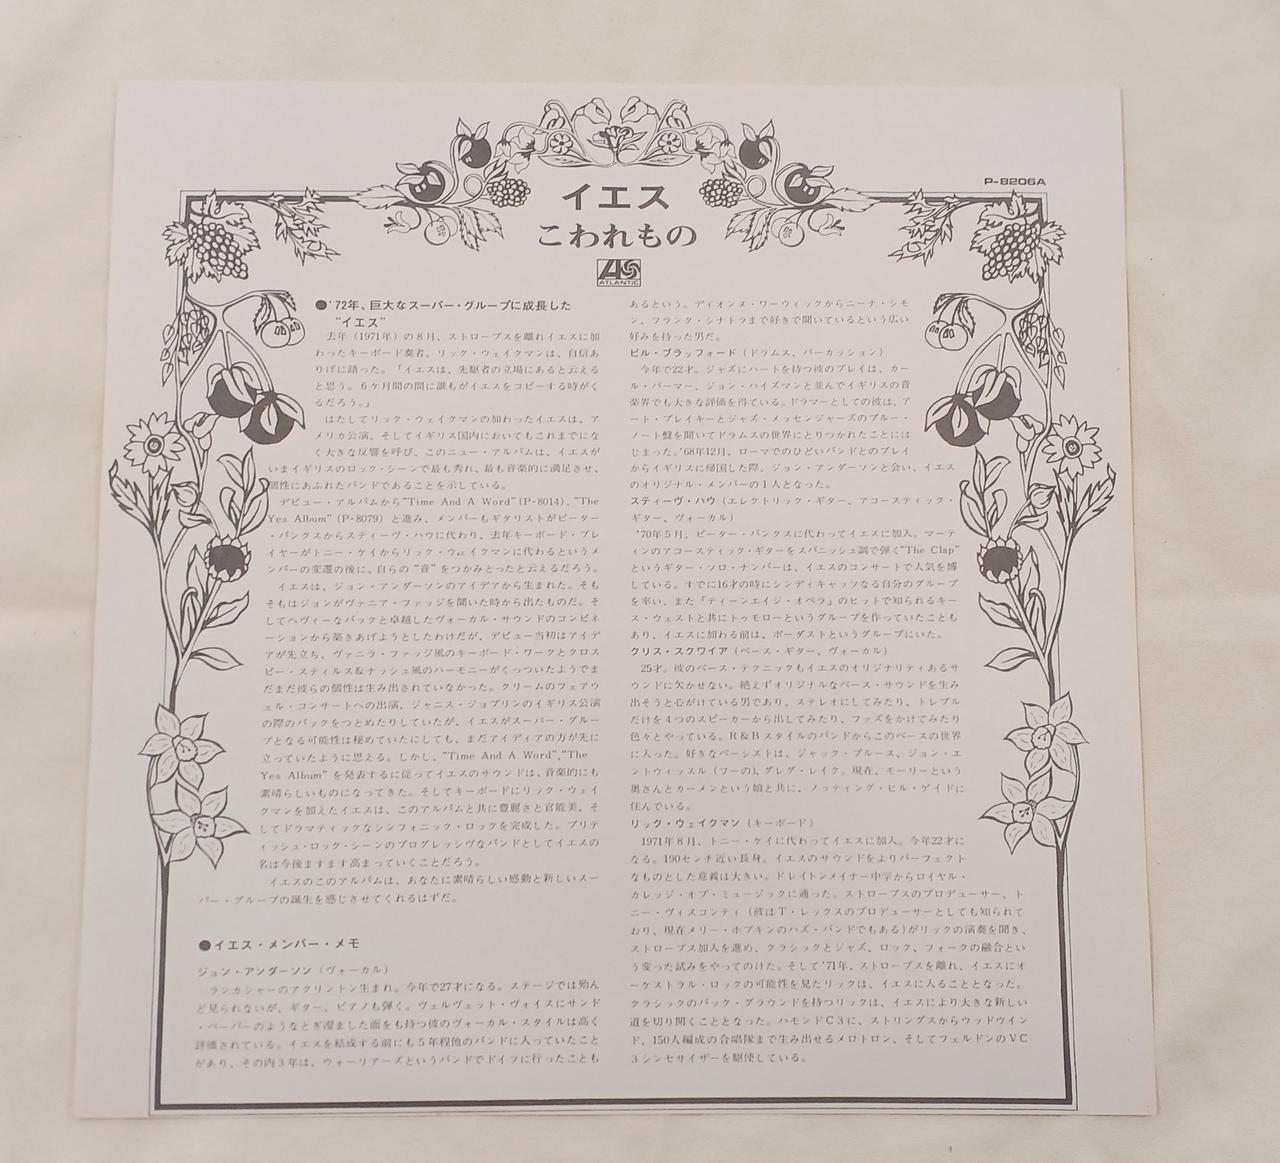 P-8206A
イエス
こわれもの
ATLANTIC
●'72年、巨大なスーパー・グループに成長した
"イエス"
去年（1971年）の8月、ストローブスを離れイエスに加
わったキーボード奏者、リック・ウェイクマンは、自信あ
りげに語った。「イエスは、先駆者の立場にあると云える
と思う。6ケ月間の間に誰もがイエスをコピーする時がく
るだろう。」
はたしてリック・ウェイクマンの加わったイエスは、ア
メリカ公演、そしてイギリス国内においてもこれまでにな
く大きな反響を呼び、このニュー・アルバムは、イエスが
いまイギリスのロック・シーンで最も秀れ、最も音楽的に満足させ、
個性にあふれたバンドであることを示している。
デビュー・アルバムから"Time And A Word"(P-8014)、"The
Yes Album"(P-8079）と進み、メンバーもギタリストがピーター
・バンクスからスティーヴ・ハウに代わり、去年キーボード・プレ
イヤーがトニー・ケイからリック・ウェイクマンに代わるというメ
ンバーの変遷の後に、自らの"音"をつかみとったと云えるだろう。
イエスは、ジョン・アンダーソンのアイデアから生まれた。そも
そもはジョンがヴァニア・ファッジを聞いた時から出たものだ。そ
してヘヴィーなバックと卓越したヴォーカル・サウンドのコンビネ
ーションから築きあげようとしたわけだが、デビュー当初はアイデ
アが先立ち、ヴァニラ・ファッジ風のキーボード・ワークとクロス
ビー・スティルス&ナッシュ風のハーモニーがくっついたようでま
だまだ彼らの個性は生み出されていなかった。クリームのフェアウ
ェル・コンサートへの出演、ジャニス・ジョプリンのイギリス公演
の際のバックをつとめたりしていたが、イエスがスーパー・グルー
プとなる可能性は秘めていたにしても、まだアイディアの方が先に
立っていたように思える。しかし、"Time And A Word","The
Yes Album"を発表するに従ってイエスのサウンドは、音楽的にも
素晴らしいものになってきた。そしてキーボードにリック・ウェイ
クマンを加えたイエスは、このアルバムと共に豊麗さと官能美、そ
してドラマティックなシンフォニック・ロックを完成した。ブリテ
ィッシュ・ロック・シーンのプログレッシヴなバンドとしてイエスの
名は今後ますます高まっていくことだろう。
イエスのこのアルバムは、あなたに素晴らしい感動と新しいスー
パー・グループの誕生を感じさせてくれるはずだ。
●イエス・メンバー・メモ
ジョン・アンダーソン（ヴォーカル）
ランカシャーのアクリントン生まれ。今年で27才になる。ステージでは殆ん
ど見られないが、ギター、ピアノも弾く。ヴェルヴェット・ヴォイスにサンド
・ペーパーのようなとぎ澄ました面をも持つ彼のヴォーカル・スタイルは高く
評価されている。イエスを結成する前にも5年程他のバンドに入っていたこと
があり、その内3年は、ウォーリアーズというバンドでドイツに行ったことも
あるという。ディオンヌ・ワーウィックからニーナ・シモ
ン、フランク・シナトラまで好きで聞いているという広い
好みを持った男だ。
ビル・ブラッフォード（ドラムス、パーカッション）
今年で22才。ジャズにハートを持つ彼のプレイは、カー
ル・パーマー、ジョン・ハイズマンと並んでイギリスの音
楽界でも大きな評価を得ている。ドラマーとしての彼は、ア
ート・ブレイキーとジャズ・メッセンジャーズのブルー・
ノート盤を聞いてドラムスの世界にとりつかれたことには
じまった。'68年12月、ローマでのひどいバンドとのプレイ
からイギリスに帰国した際、ジョン・アンダーソンと会い、イエス
のオリジナル・メンバーの1人となった。
スティーヴ・ハウ（エレクトリック・ギター、アコースティック・
ギター、ヴォーカル）
'70年5月、ピーター・バンクスに代わってイエスに加入。マーテ
ィンのアコースティック・ギターをスパニッシュ調で弾く"The Clap"
というギター・ソロ・ナンバーは、イエスのコンサートで人気を博
している。すでに16才の時にシンディキャッツなる自分のグループ
を率い、また「ティーンエイジ・オペラ」のヒットで知られるキー
ス・ウェストと共にトゥモローというグループを作っていたことも
あり、イエスに加わる前は、ボーダストというグループにいた。
クリス・スクワイア（ベース・ギター、ヴォーカル）
25才。彼のベース・テクニックもイエスのオリジナリティあるサ
ウンドに欠かせない。絶えずオリジナルなベース・サウンドを生み
出そうと心がけている男であり、ステレオにしてみたり、トレブル
だけを4つのスピーカーから出してみたり、ファズをかけてみたり
色々とやっている。R&Bスタイルのバンドからこのベースの世界
に入った。好きなベーシストは、ジャック・ブルース、ジョン・エ
ントウィッスル（フーの)、グレグ・レイク。現在、モーリーという
奥さんとカーメンという娘と共に、ノッティング・ヒル・ゲイドに
住んでいる。
リック・ウェイクマン（キーボード）
1971年8月、トニー・ケイに代わってイエスに加入。今年22才に
なる。190センチ近い長身。イエスのサウンドをよりパーフェクト
なものとした意義は大きい。ドレイトンメイナー中学からロイヤル・
カレッジ・オブ・ミュージックに通った。ストローブスのプロデューサー、ト
ニー・ヴィスコンティ（彼はT・レックスのプロデューサーとしても知られて
おり、現在メリー・ホプキンのハズ・バンドでもある)がリックの演奏を聞き、
ストローブス加入を進め、クラシックとジャズ、ロック、フォークの融合とい
う変った試みをやってのけた。そして'71年、ストローブスを離れ、イエスにオ
ーケストラル・ロックの可能性を見たリックは、イエスに入ることとなった。
クラシックのバック・グラウンドを持つリックは、イエスにより大きな新しい
道を切り開くこととなった。ハモンドC3に、ストリングスからウッドウイン
ド、150人編成の合唱隊まで生み出せるメロトロン、そしてフェルドンのVC
3シンセサイザーを駆使している。